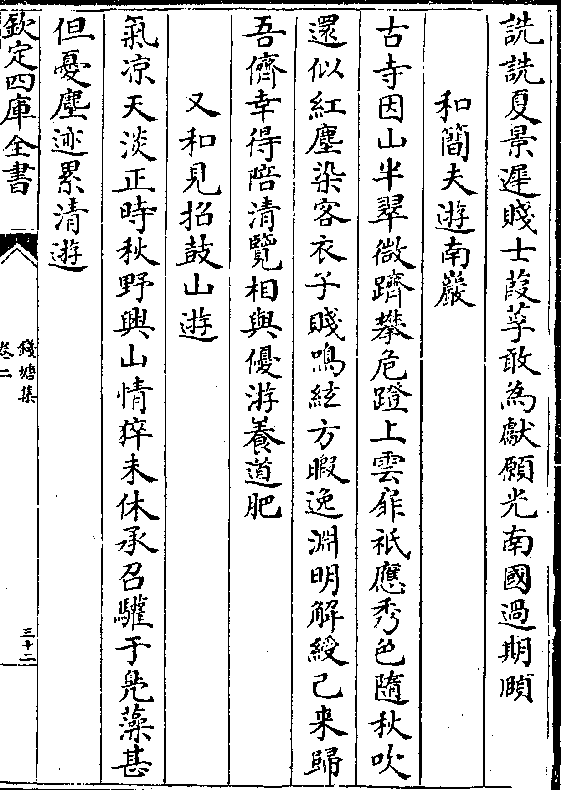 詵詵夏景遲賤士葭莩敢為獻願光南國過期頤
和簡夫遊南巖
古寺因山半翠微躋攀危蹬上雲扉祇應秀色隨秋吹
還似紅塵染客衣子賤鳴絃方暇逸淵明解綬已来歸
吾儕幸得陪清覽相與優游養道肥
又和見招鼓山遊
氣凉天淡正時秋野興山情猝未休承召驩于鳧藻甚
但憂塵迹累清遊
欽定四庫全書
錢塘集
卷二
三十二